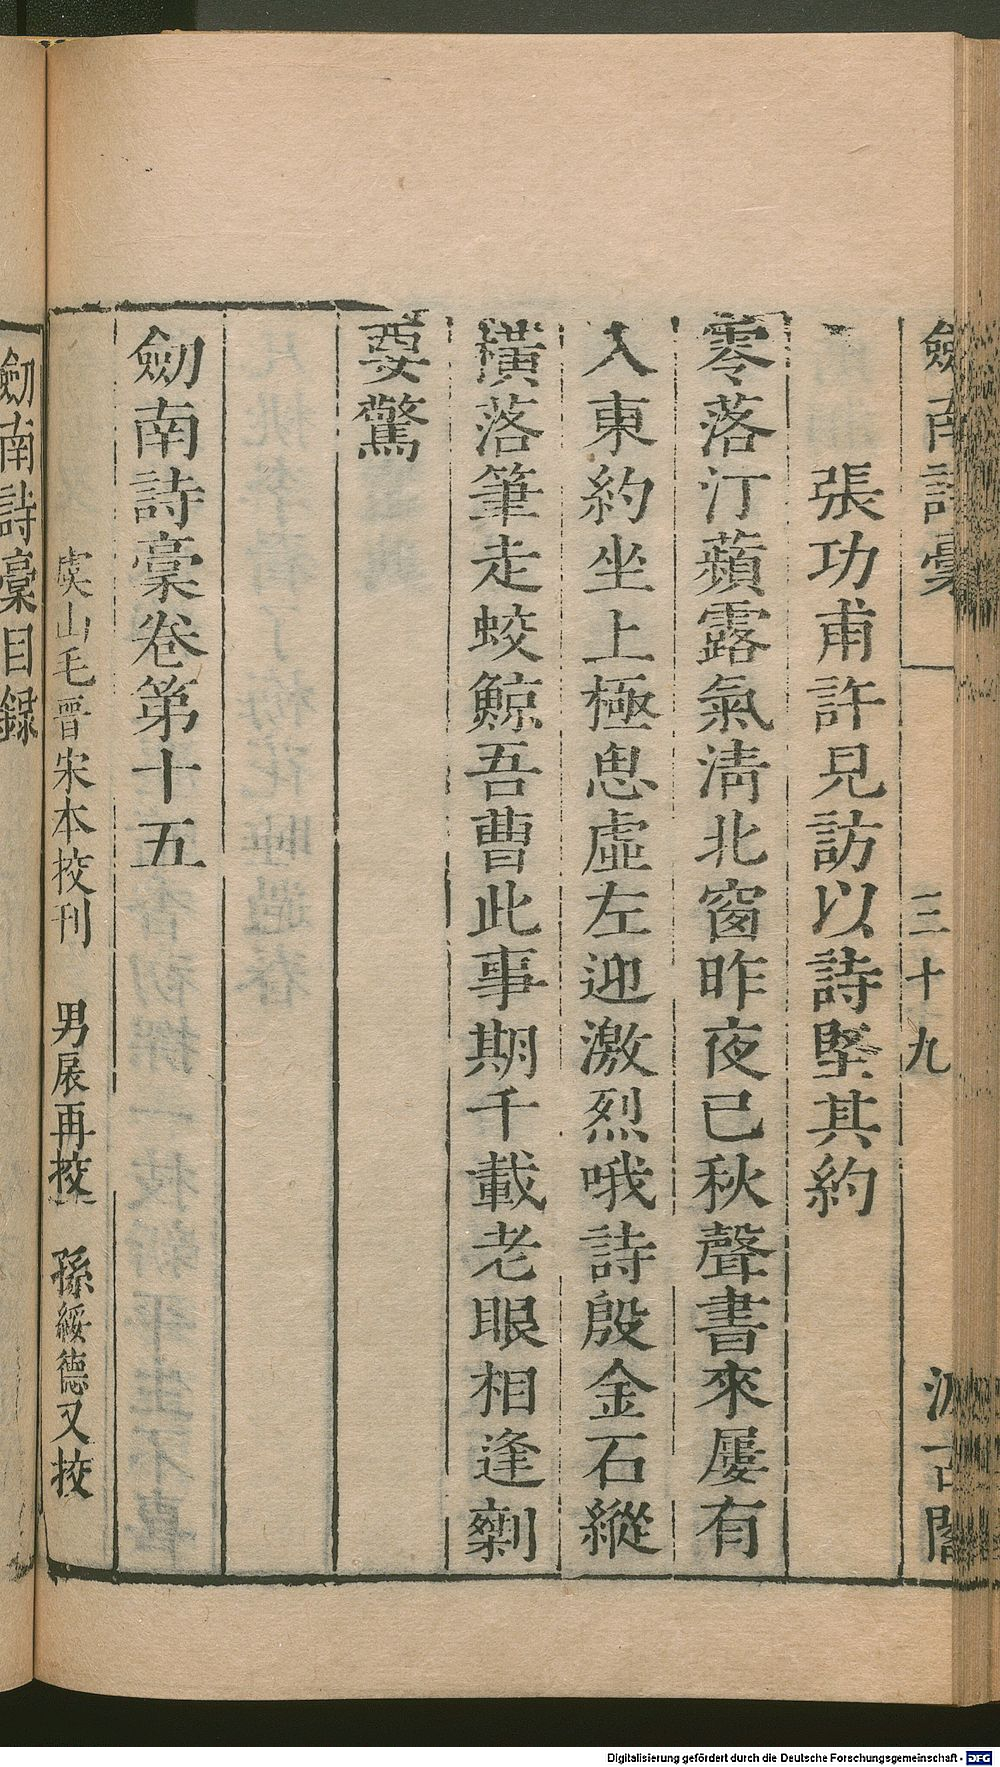 劍南詩稾
三十九
汲古閣
張功甫許見訪以詩堅其約
零落汀蘋露氣淸北窗昨夜已秋聲書來屢有
入東約坐上極思虛左迎激烈哦詩殷金石縱
橫落筆走蛟鯨吾曹此事期千載老眼相逢剩
要驚
劒南詩稾卷第十五
虞山毛晉宋本挍刊 男扆再挍 孫綏德又挍
劒南詩稾目録
Digitalisierung gefördert durch die Deutsche Forschungsgemeinschaft - DFG